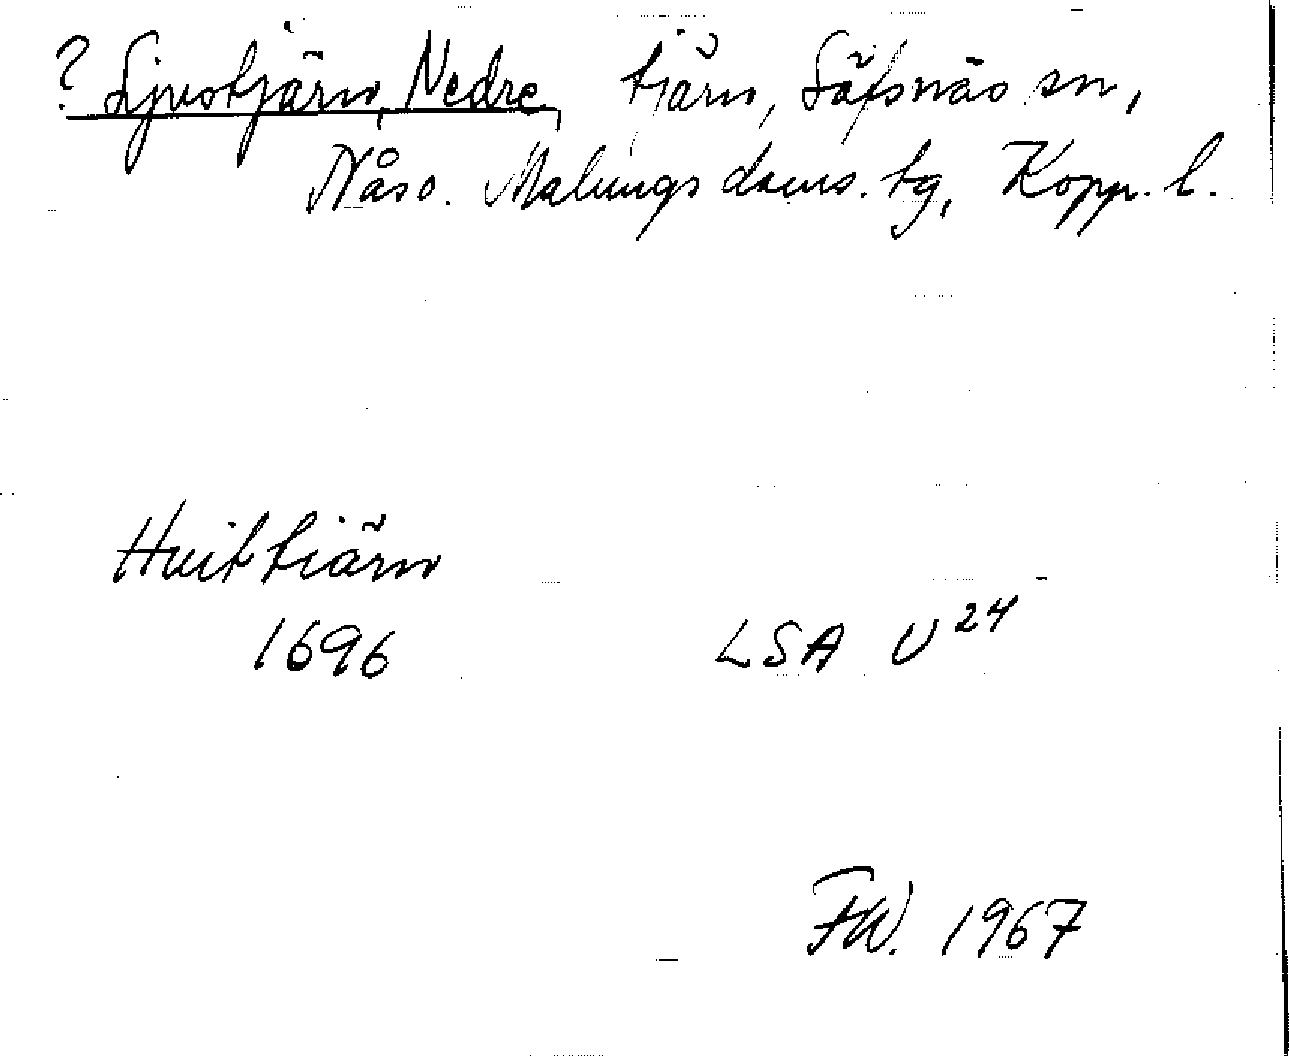 ? Ljustjärn, Nedre, tjärn, Säfsnäs sn,
Nås o. Malungs doms. tg, Kopp. l.
Huittiärn
1696 LSA U24
FW. 1967